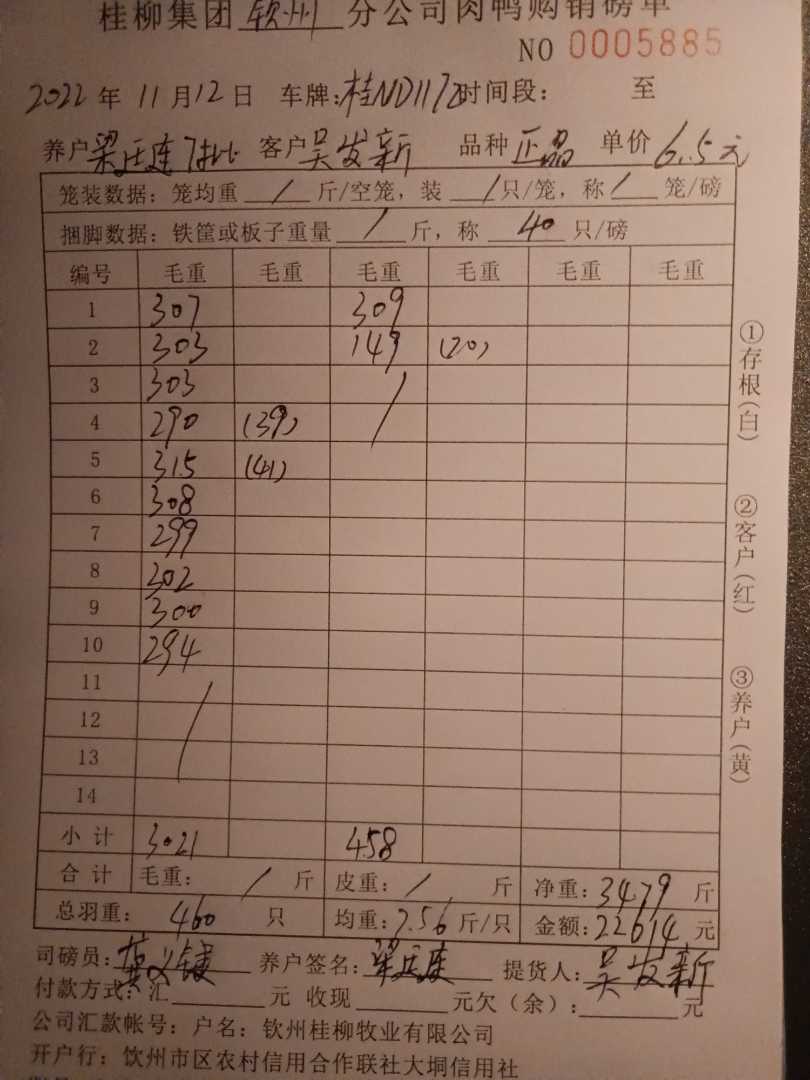 桂柳集团 钦州 分公司肉鸭购销磅单
NO 0005885
2022年 11月12日 车牌:桂ND1172时间段: 至
养户 梁 连 客户 吴发新 品种 正品 单价 6.5元
笼装数据: 笼均重 / 斤/空笼, 装 / 只/笼, 称 / 笼/磅
捆脚数据: 铁筐或板子重量 / 斤, 称 40 只/磅
编号 毛重 毛重 毛重 毛重 毛重 毛重
1 307 309
2 303 149 (20)
3 303 /
4 290 (39)
5 315 (41)
6 308
7 299
8 302
9 300
10 294
11 /
12
13
14
小计 3021 458
合计 毛重: / 斤 皮重: / 斤 净重: 3479 斤
总羽重: 460 只 均重: 7.56 斤/只 金额: 22614 元
司磅员: 养户签名: 梁 连 提货人: 吴发新
付款方式: 汇 元 收现 元欠(余): 元
公司汇款帐号: 户名: 钦州桂柳牧业有限公司
开户行: 饮州市区农村信用合作联社大垌信用社
①存根(白) ②客户(红) ③养户(黄)